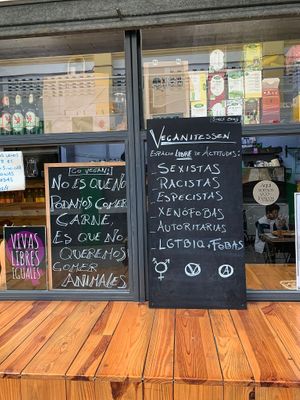 GO VEGAN!
NO ES QUE NO
PODAMOS COMER
CARNE,
ES QUE NO
QUEREMOS
COMER
ANIMALES
VIVAS
LIBRES
IGUALES
VEGANITESSEN
ESPACIO LIBRE DE ACTITUDES:
-SEXISTAS
-RACISTAS
-ESPECISTAS
-XENÓFOBAS
-AUTORITARIAS
-LGTBIQ+FOBAS